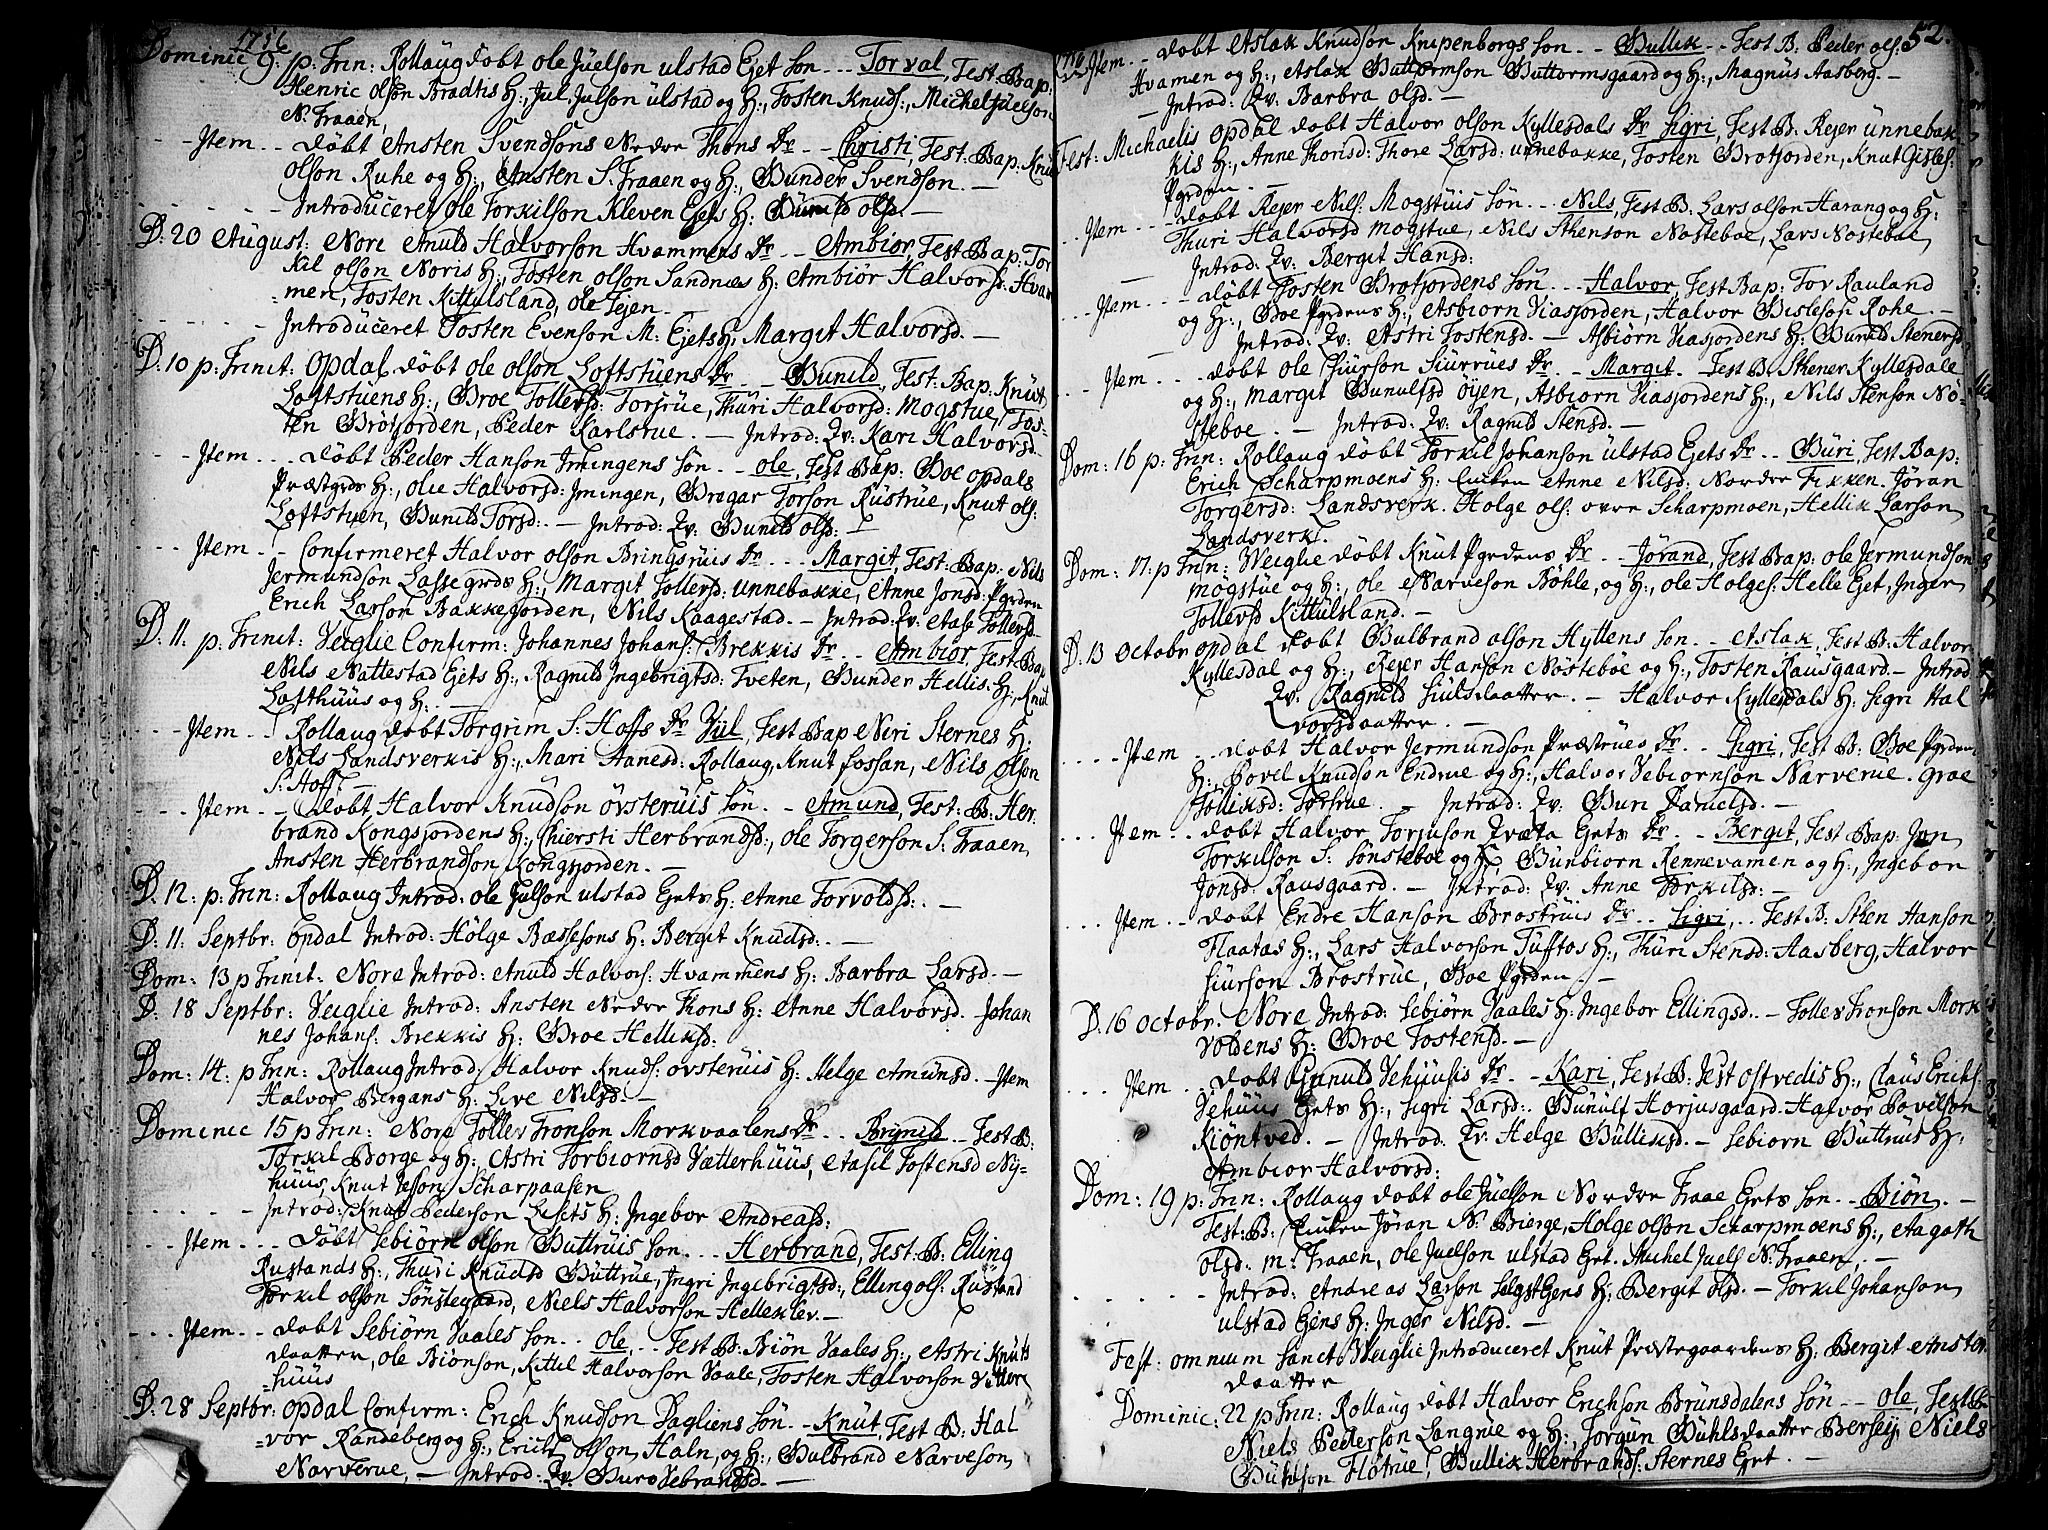 1756
Dominic 9. p: Trin: Rollaug døbt ole Juelson ulstad Eget søn - - - Torval, Test: Bap:
Henric olson Bradtis H:, Jul. Julson ulstad og H:, Tosten Knuds:, Michel Juelson
N: Traaen,
- - Jtem - - døbt Ansten Svendsøns Nordre Thøns Dr - - Christi, Test: Bap: Knut
olson Ruhe og H:, Ansten S. Traaen og H:, Gunder Svendson. —
- - - - - Introduceret ole Torkilson Kleven Egets H: Gunild olsd. —
D: 20 August: Nore Anuld Halvorson Hvammens Dr - - Ambiør, Test: Bap: Tor
kil olson Noris H:, Tosten olson Sandnæs H: Ambiør Halvorsd: Hvam
=men, Tosten Kittulsland, ole Tejen. —
- - - - - Introduceret Tosten Evenson M: Egets H: Margit Halvorsd. —
D: 10 p: Trinit: Opdal døbt ole olson Loftstuens Dr - - Gunild, Test: Bap: Knut
Loftstuens H:, Groe Tollevsd: Torsrue, Thuri Halvorsd: Mogstue, Tos=
ten Grøtjorden, Peder Karlsrue. — Introd: Qv: Kari Halvorsd.
- - Jtem - - - døbt Peder Hanson Jmingens søn - - ole, Test Bap: Boe opdals
Præstgrds H:, olie Halvorsd: Jmingen, Dragar Torson Rustrue, Knut ols:
Loftstuen, Gunild Torsd: — Introd: Qv: Gunild olsd: —
- - Jtem - - Confirmeret Halvor olson Bringsruis Dr - - - Margit, Test: Bap: Nils
Jermundson Lassegrds H:, Margit Tollevsd: unnebakke, Anne Jonsd: Pgrden
Erich Larson Bakkejorden, Nils Kaagestad. — Introd: Qv: Aase Tollevsd.
D: 11. p: Trinit: Veiglie Confirm: Johannes Johans: Brekkis Dr - - Ambior, Test: Bap
Nils Nattestad Egets H:, Ragnild Jngebrigtsd: Tveten, Gunder Hellis: H:, Knut
Lofthuus og H: —
- - - Jtem - - Rollaug døbt Torgrim S: Hoffs Dr Jul, Test Bap Neri Sternes H:
Nils Landsverkis H:, Mari Aanesd: Rollaug, Knut fossan, Nils Olson
S: Hoff. —
- - Jtem - - døbt Halvor Knudson Øvsteruis søn. - Amund, Test: B: Her
brand Kongsjordens H:, Chiersti Herbrandsd:, ole Torgerson S: Traaen,
Ansten Herbrandson Kongsjorden. —
D. 12. p: Trin: Rollaug Introd: ole Julson ulstad Egets H: Anne Torvoldsd: . —
D: 11 Septbr: opdal Introd: Hølge Bæssesøns H: Bergit Knudsd: . —
Dom: 13 p Trinit: Nore Introd: Anuld Halvors: Hvammens H: Barbra Larsd. —
D. 18 Septbr: Veiglie Introd: Ansten Nordre Thons H: Anne Halvorsd. - Johan
nes Johans: Brekkis H: Groe Helliksd:
Dom: 14. p Trin: Rollaug Introd: Halvor Knuds: øvsteruis H: Helge Amunsd. - Jtem
Halvor Bergans H: Live Nilsd. —
Dominic 15 p Trin: Nore Tollev Tronson Morkvaalens Dr - - Brynild - - Test: B:
Torkil Borge og H:, Astri Torbiornsd Vætterhuus, Aasil Tostensd Ny=
huus, Knut Scharpaasen
- - - - - Introd: Knut Pederson Lises H: Ingebor Andreasd:
- - Jtem - - - døbt Sebiørn olson Guttruis søn - - - Herbrand, Test: B: Elling
Rustands H:, Thuri Knudsd Guttrue, Jngri Jngebrigtsd:, Elling ols: Rustand
Torkil olson Sønstegaard, Niels Halvorson Helleklev. —
- - - Jtem - - døbt Sebiørn Vaales søn - - ole, - - Test: B: Biøn Vaales H:, Astri Knuts
daatter, ole Biønson, Kittil Halvorson Vaale, Tosten Halvorson Vetter
=huus
D: 28 Septbr: opdal Confirm: Erich Knudson Dagliens søn. - Knut, Test B: Hal
=vor Randeberg og H:, Erich olson Haln, og H:, Gulbrand Narveson
Narverue, — Introd: Qv: Guro

52.
1756 Jtem - - døbt Aslak Knudson Knipenborgs søn - - Gullik - - Test B: Peder ols:
Hvamen og H:, Aslak Guttormson Guttormsgaard og H:, Magnus Aasberg. —
— Introd: Qv: Barbra olsd. —
Fest: Michaelis opdal døbt Halvor olson Kyllesdals Dr Sigri, Test B: Rejer unnebak
kis H:, Anne Thorisd: Thore Larsd: unnebakke, Tosten Grøtjorden, Knut Gisles:
Pgrden - —
- - Jtem - - - døbt Rejer Nils: Mogstuis søn. - - Nils, Test B: Lars olson Haraug og H:
Thuri Halvorsd mogstue, Nils Sthenson Nøsteboe, Lars Nøsteboe,
Introd: Qv: Bergit Hansd:
- - Jtem - - - døbt Tosten Grøtjordens søn - - - Halvor, Test Bap: Tor Rauland
og H:, Boe Pgrdens H:, Asbiorn Viasjorden, Halvor Gisleson Rohe. —
Introd: Qv: Astri Tostensd. — Asbiørn Viasjordens H: Gunild Stenersd.
- - Jtem - - - døbt ole Siurson Siurrues Dr. - - Margit. - Test B: Sthener Kyllesdale
og H:, Margit Gunulfsd øyen, Asbiorn Viasjordens H:, Nils Stenson Nø=
steboe. — Introd: Qv: Ragnild Stensd. —
Dom: 16 p: Trin: Rollaug døbt Torkil Johanson ulstad Egets Dr - - Guri, Test Bap:
Erich Scharpmoens H: Enken Anne Nilsd: Nordre Fikken. Jøran
Torgersd: Landsverk. Holge ols: øvre Scharpmoen, Hellik Larson
Landsverk.
Dom: 17. p Trin: Veiglie døbt Knut Pgrdens Dr - - Jørand, Test Bap: ole Jermundson
mogstue og H:, ole Narveson Bøhle, og H:, ole Holges: Helle Eget, Inger
Tollevsd Kittulsland. —
D: 13 Octobr opdal døbt Gulbrand olson Hyttens søn. - - Aslak, Test B: Halvor
Kyllesdal og H:, Rejer Hanson Nøsteboe og H:, Tosten Rausgaard. — Introd
Qv: Ragnild Siulsdaatter. — Halvor Kyllesdals H: Sigri Hal
vorsdaatter. —
- - - - Jtem - - døbt Halvor Jermundson Præstrues Dr. - - Sigri, Test B: Boe Pgrdens
H:, Povel Knudson Endrue og H:, Halvor Vebiornson Narverue. Groe
Tolliksd: Torsrue. — Introd: Qv: Guri Danielsd. —
- - - Jtem - - døbt Halvor Torjuson Egets Dr. - - Bergit, Test Bap: Jon
Torkilson S: Sønsteboe og H:, Gunbiorn Rennevamen og H:, Ingebor
Jonsd: Rausgaard. — Introd: Qv: Anne Torkilsd: —
- - - Jtem - - døbt Endre Hanson Brostruis Dr - - Sigri, - - Test B: Sthen Hanson
Flaatas H:, Lars Halvorson Tufftos H:, Thuri Stensd: Aasberg, Halvor
Siurson Brostrue, Boe Pgrden —
D: 16 Octobr. Nore Introd: Sebiørn Vaales H: Ingebor Ellingsd: - Tollev Tronson Mork
voldens H: Groe Tostensd. —
- - - Jtem - - døbt Gunuld Vehuusis Dr - - Kari, Test B: Test ostvedis H:, Claus Erichs:
Vehuus Egets H:, Sigri Larsd: Gunulf Horjusgaard. Halvor Povilson
Kiøntved. — Introd: Qv: Helge Gulliksd. — Sebiørn Guttruus H:
Ambior Halvorsd:
Dom: 19 p: Trin: Rollaug døbt ole Juelson Nordre Traae Egets søn. - - Biøn. —
Test: B: Enken Jøran N: Bierge, Holge olson Scharpmoens H:, Aagoth
olsd: m: Traaen, ole Juelson ulstad Eget. Michel Juels N: Traaen, —
- - - - - - Introd: Andreas Larson Egens H: Bergit olsd. — Torkil Johanson
ulstad Egens H: Inger Nilsd. —
Fest: omnium Sanct: Veiglie Introduceret Knut Præstegaardens H: Bergit Ansten
daatter
Dominic: 22 p Trin: Rollaug døbt Halvor Erichson Brunsdalens søn - - ole, Test B
Niels Pederson Langrue og H:, Jorgun Buhlsdaatter Bersej, Niels
Buhlson Fløtrue, Gullik Herbrands: Sternes Eget. —